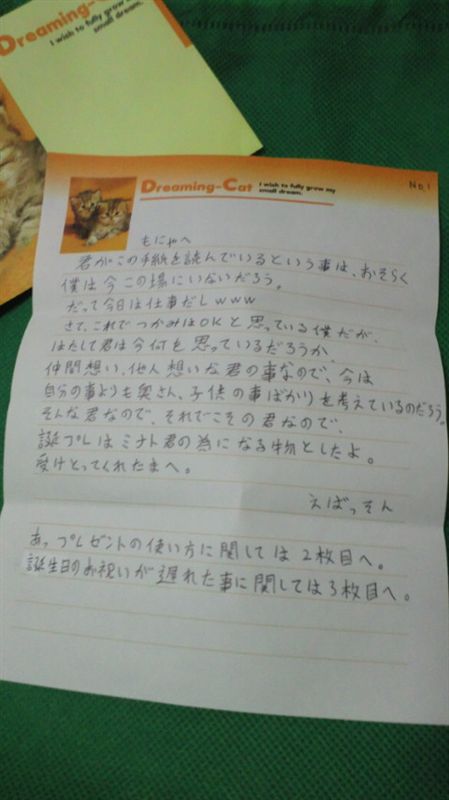 Dreaming-
I wish to fully grow my
small dream.
Dreaming-Cat
I wish to fully grow my
small dream.
No.1
もにゃへ
君がこの手紙を読んでいるという事は、おそらく
僕は今この場にいないだろう。
だって今日は仕事だしwww
さて、これでつかみはOKと思っている僕だが、
はたして君は今何を思っているだろうか
仲間想い、他人想いな君の事なので、今は
自分の事よりも奥さん、子供の事ばかりを考えているのだろう。
そんな君なので、それでこその君なので、
誕プレはミナト君の為になる物としたよ。
受けとってくれたまへ。
えばっそん
あっプレゼントの使い方に関しては2枚目へ。
誕生日のお祝いが遅れた事に関しては3枚目へ。